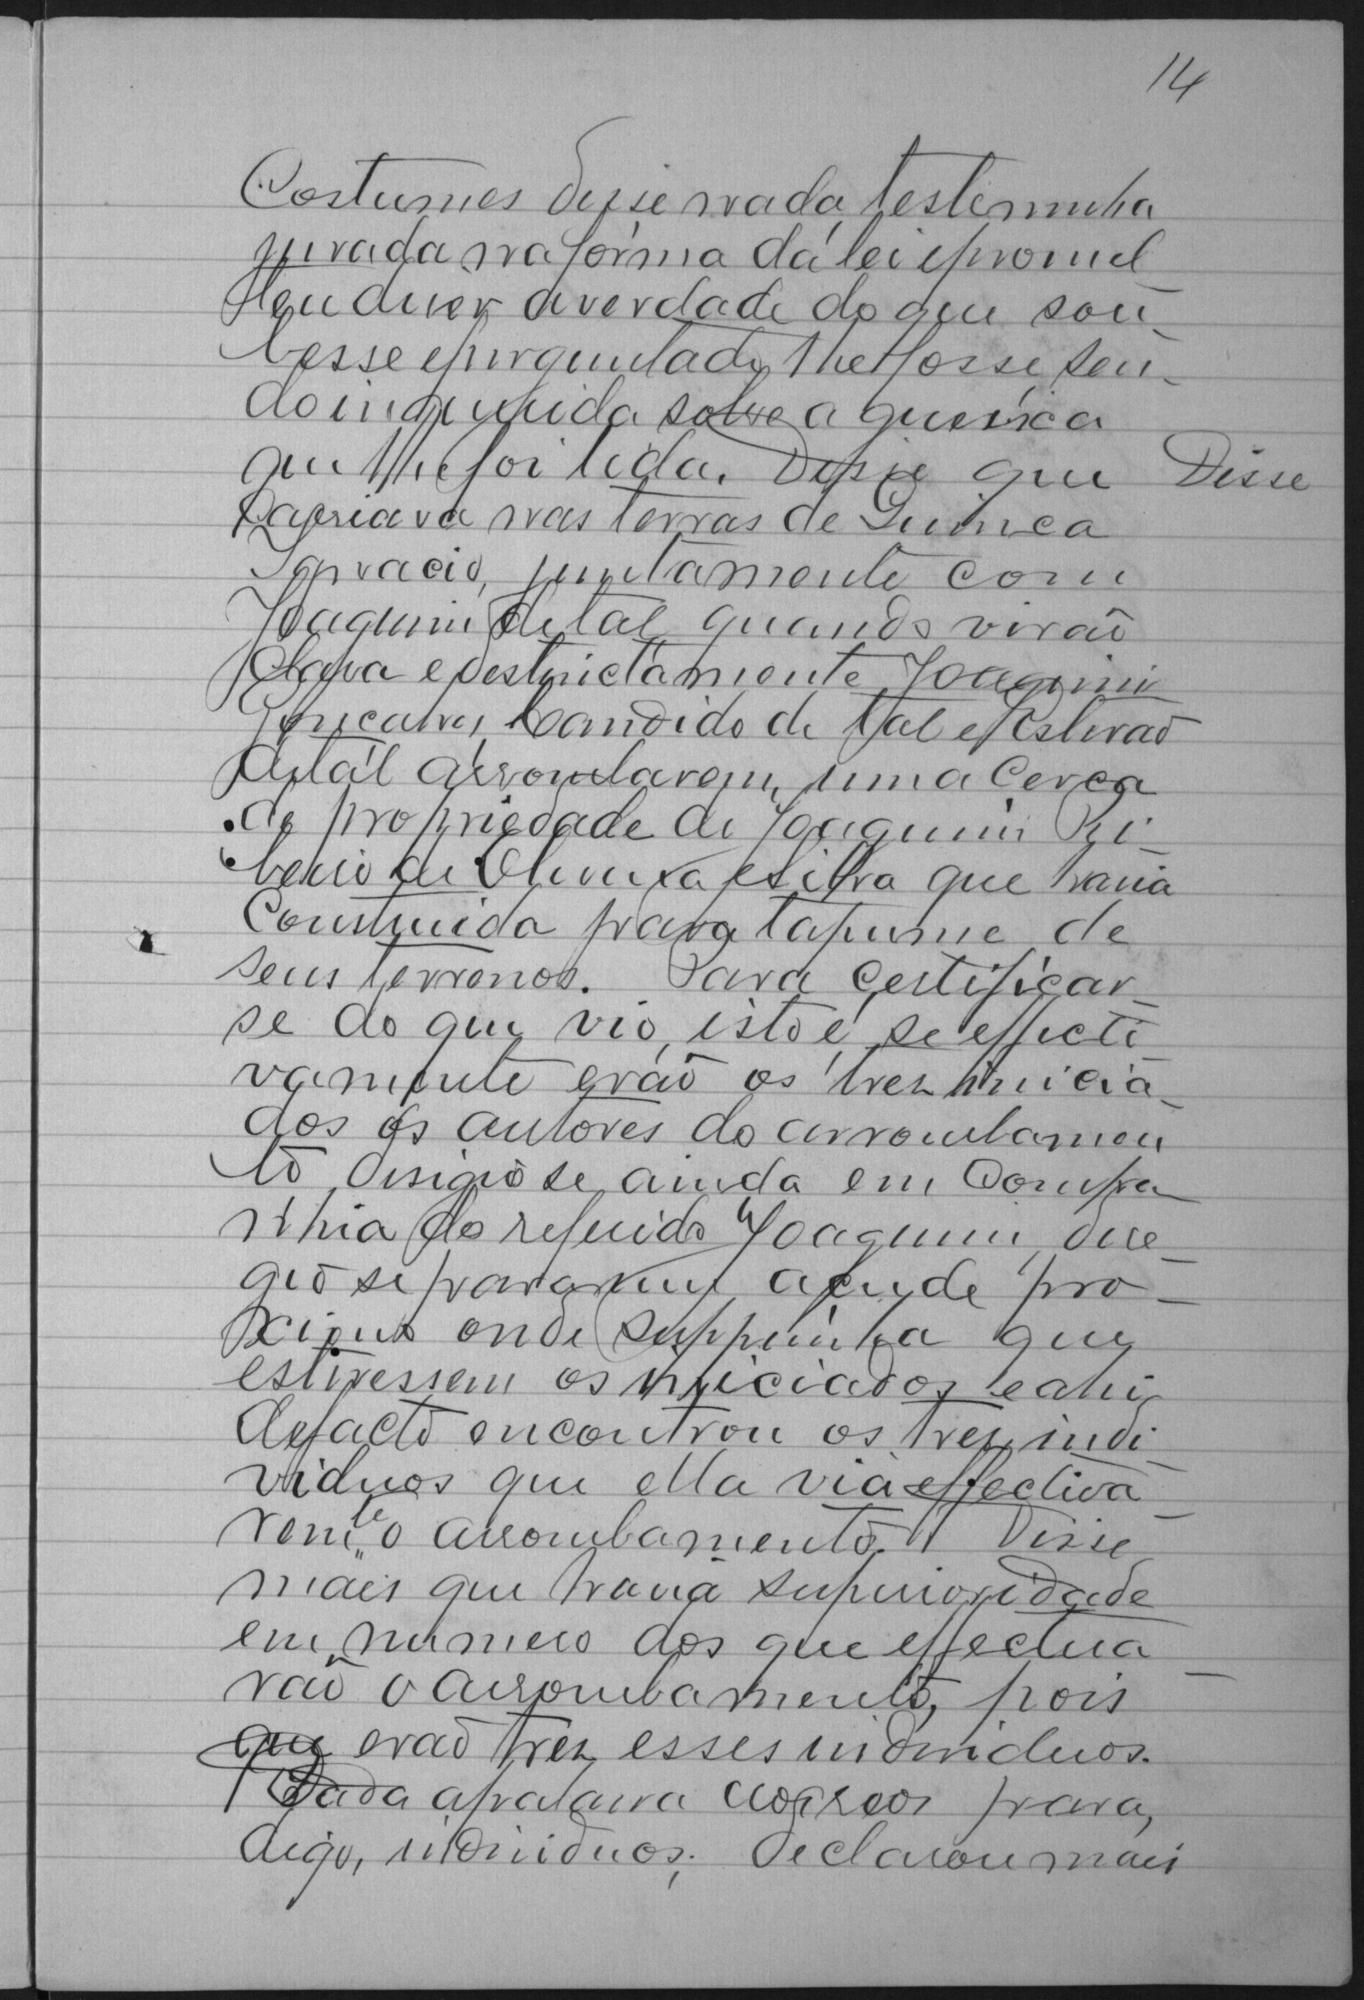 14
Costumes disse nada, testemunha
jurada na fórma da lei e promet
teu diser a verdade do que sou-
besse e perguntado lhe fosse, sen-
do inquirida sobre a queixa
que lhe foi lida. Disse que
Disse
nas terras de Guinca
Ignacio, juntamente com
Joaquim de tal quando virão
clara e destinctamente Joaquim
Gonçalves, Candido de tal e Estevão
de tal arrombarem uma cerca
de propriedade de Joaquim Ri-
beiro de Oliveira e Silva que havia
construida para tapume de
seus terrenos. Para certificar-
se do que vio, isto é, se effecti
vamente erão os tres inicia-
dos os autores do arrombamen
to dirigio se ainda em Compa-
nhia do referido Joaquim, dire-
gio se para um açude pro-
ximo onde suppunha que
estivessem os iniciados e ahi
defacto encontrou os tres indi-
viduos que ella via effectiva-
rem o arrombamento. Disse
mais que havia superioridade
em numero dos que effectua-
rão o arrombamento, pois
que erão tres esses individuos.
Dada a palavra para,
digo, individuos; Declarou mais